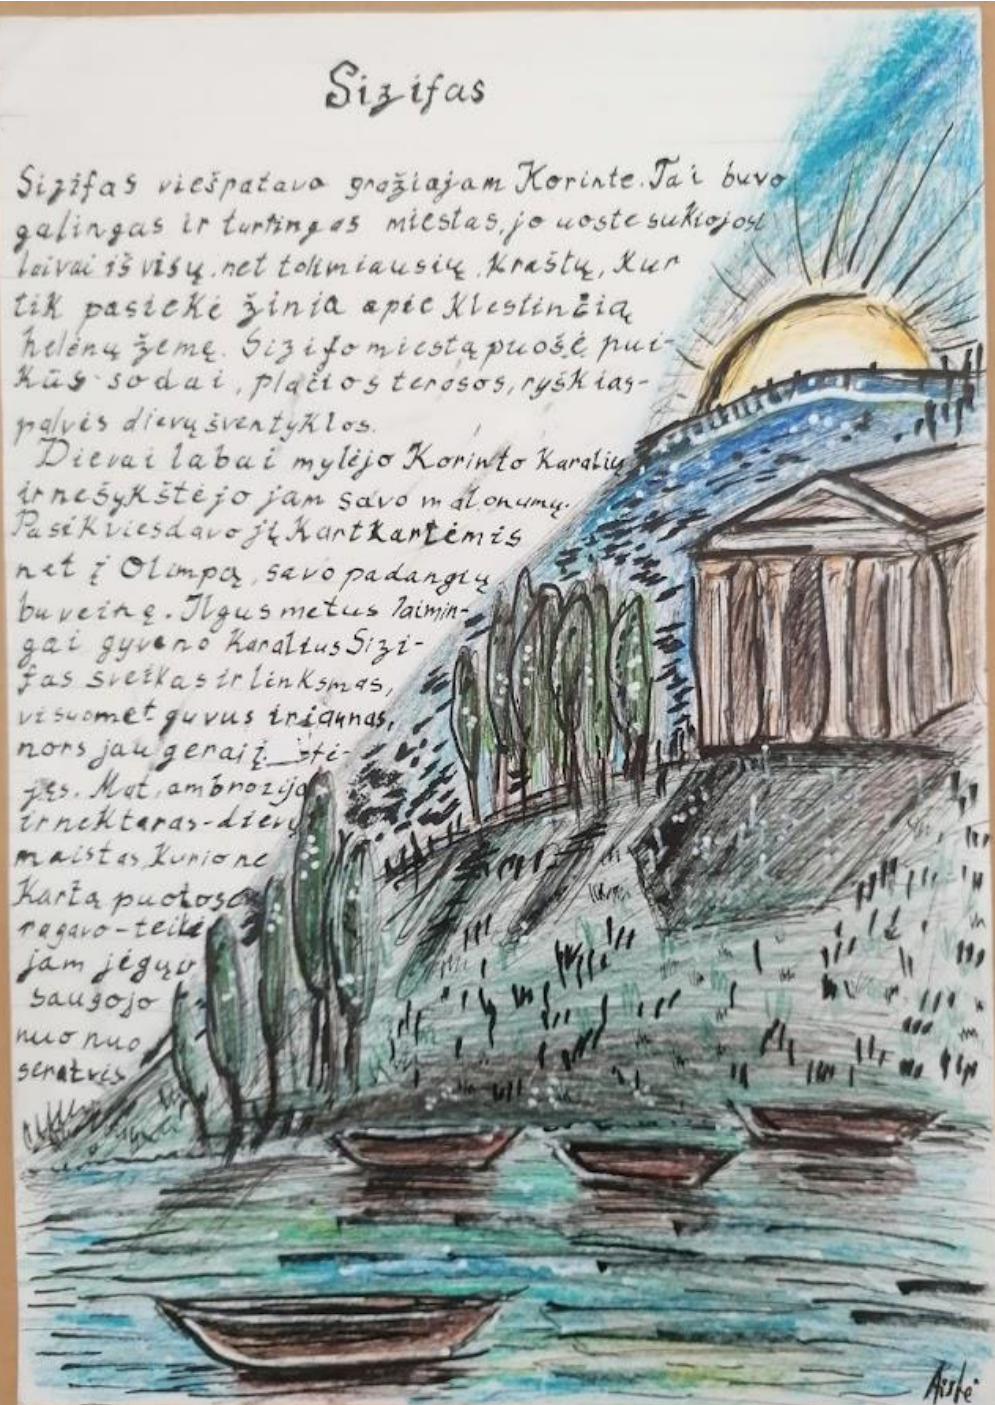 Sizifas
Sizifas viešpatavo gražiajam Korinte. Tai buvo
galingas ir turtingas miestas, jo uoste sukiojosi
laivai iš visų, net tolimiausių kraštų, kur
tik pasiekė žinia apie klestinčią
helėnų žemę. Sizifo miestą puošė pui-
kūs sodai, plačios terasos, ryškias-
palvės dievų šventyklos.
Dievai labai mylėjo Korinto karalių
ir nešykštėjo jam savo malonumų.
Pasikviesdavo jį kartkartėmis
net į Olimpą, savo padangių
buveinę. Ilgus metus laimin-
gai gyveno karalius Sizi-
fas sveikas ir linksmas,
visuomet guvus ir jaunas,
nors jau gerai į sti-
jęs. Mat, ambrozija
ir nektaras-dievų
maistas kurio ne
kartą puotose
ragavo-teikė
jam jėgų
saugojo
nuo nuo
senatvės
Aistė